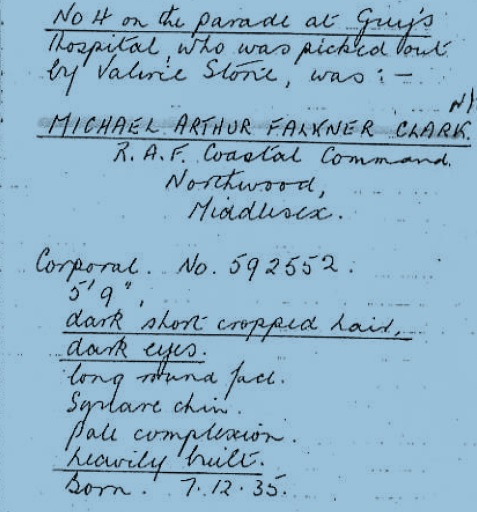 No 4 on the parade at Guy's
Hospital, who was picked out
by Valerie Storie, was : —
MICHAEL ARTHUR FALKNER CLARK.
R.A.F. Coastal Command.
Northwood,
Middlesex.
Corporal. No. 592552.
5'9",
dark short cropped hair,
dark eyes.
long round face.
Square chin.
pale complexion.
heavily built.
Born. 7.12.35.